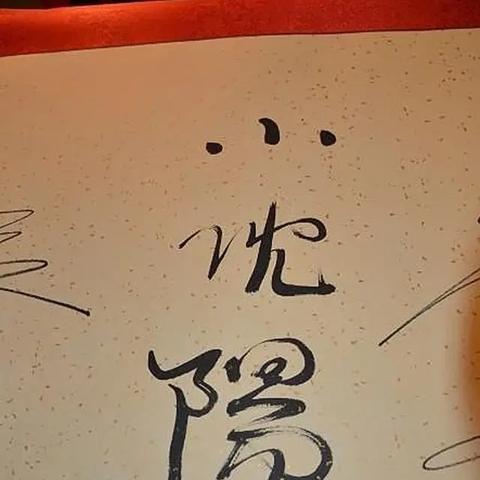 小沈陽